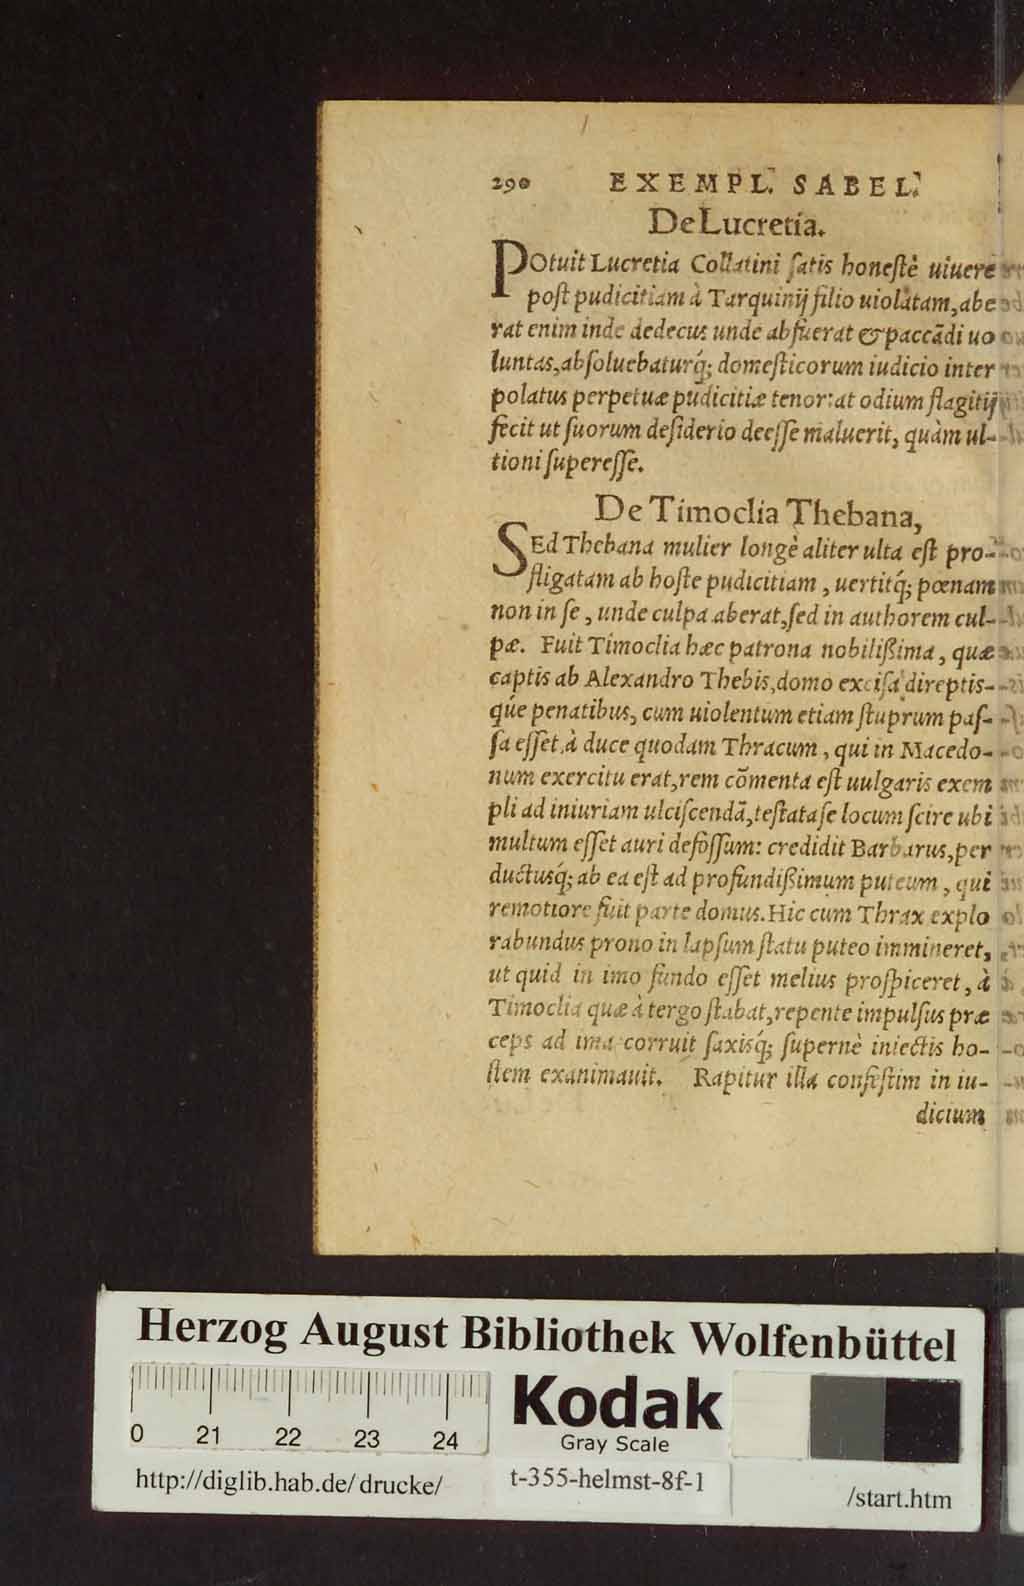 290 EXEMPL. SABEL.
De Lucretia.
POtuit Lucretia Collatini ſatis honeſtè uiuere
poſt pudicitiam à Tarquinij filio uiolatam, abe
rat enim inde dedecus unde abfuerat & paccādi uo
luntas, abſoluebaturq́; domeſticorum iudicio inter
polatus perpetuæ pudicitiæ tenor: at odium flagitij
fecit ut ſuorum deſiderio deeſſe maluerit, quàm ul-
tioni ſupereſſe.
De Timoclia Thebana,
SEd Thebana mulier longè aliter ulta eſt pro-
fligatam ab hoſte pudicitiam, uertitq́; pœnam
non in ſe, unde culpa aberat, ſed in authorem cul-
pæ. Fuit Timoclia hæc patrona nobilißima, quæ
captis ab Alexandro Thebis, domo exciſa direptis-
qúe penatibus, cum uiolentum etiam ſtuprum paſ-
ſa eſſet, à duce quodam Thracum, qui in Macedo-
num exercitu erat, rem cōmenta eſt uulgaris exem
pli ad iniuriam ulciſcendā, teſtata ſe locum ſcire ubi
multum eſſet auri defoſſum: credidit Barbarus, per
ductusq́; ab ea eſt ad profundißimum puteum, qui
remotiore fuit parte domus. Hic cum Thrax explo
rabundus prono in lapſum ſtatu puteo immineret,
ut quid in imo fundo eſſet melius proſpiceret, à
Timoclia quæ à tergo ſtabat, repente impulſus præ
ceps ad ima corruit ſaxisq́; ſupernè iniectis ho-
ſtem exanimauit. Rapitur illa confeſtim in iu-
dicium
Herzog August Bibliothek Wolfenbüttel
0 21 22 23 24
Kodak
Gray Scale
http://diglib.hab.de/drucke/ t-355-helmst-8f-1 /start.htm